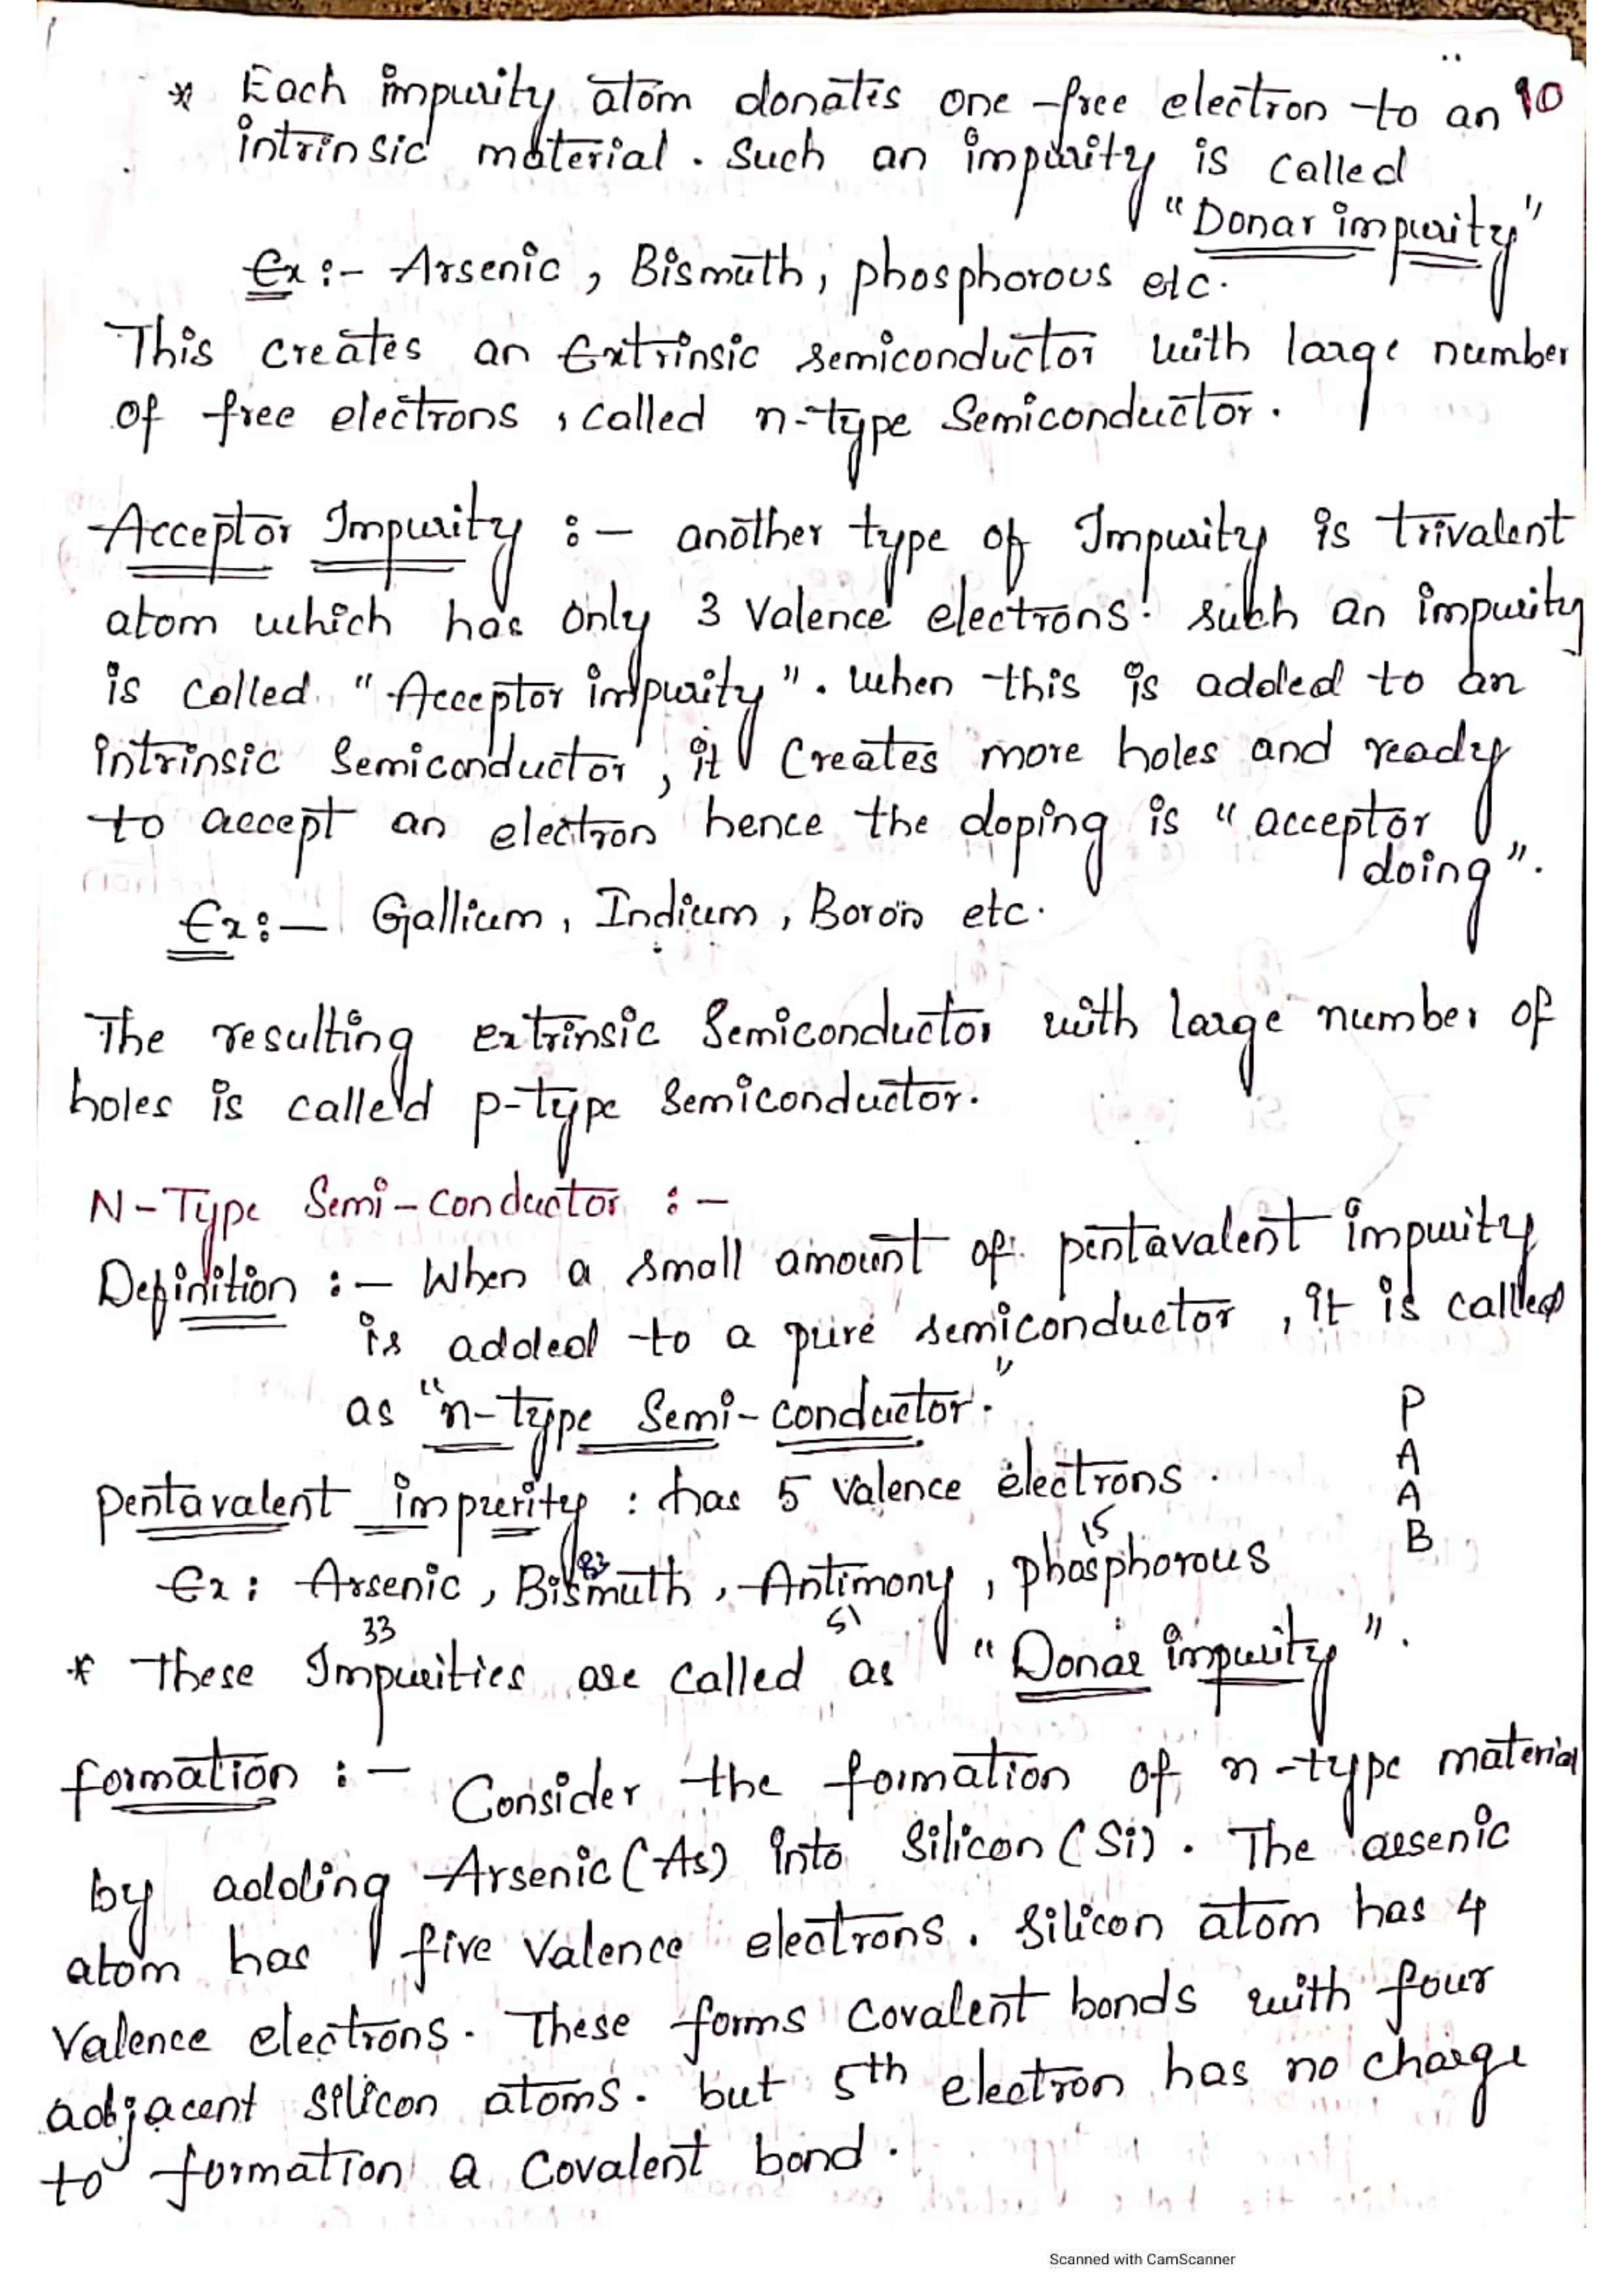 * Each impurity atom donates one free electron to an 10
intrinsic material. Such an impurity is called
"Donar impurity"
Ex:- Arsenic, Bismuth, phosphorous etc.
This creates an Extrinsic semiconductor with large number
of free electrons, called n-type Semiconductor.
Acceptor Impurity :- another type of Impurity is trivalent
atom which has only 3 Valence electrons. such an impurity
is called "Acceptor impurity". when this is added to an
intrinsic Semiconductor, it Creates more holes and ready
to accept an electron hence the doping is "acceptor
doing".
Ex:- Gallium, Indium, Boron etc.
The resulting extrinsic Semiconductor with large number of
holes is called p-type Semiconductor.
N-Type Semi-conductor :-
Definition :- When a small amount of pentavalent impurity
is added to a pure semiconductor, it is called
as "n-type Semi-conductor."
P
A
A
B
pentavalent impurity : has 5 valence electrons.
15
83
Ex: Arsenic, Bismuth, Antimony, phosphorous
33 51
* these Impurities are called as "Donar impurity".
formation :- Consider the formation of n-type material
by adding Arsenic (As) into Silicon (Si). The arsenic
atom has five Valence electrons. Silicon atom has 4
Valence electrons. These forms Covalent bonds with four
adjacent silicon atoms. but 5th electron has no charge
to formation a Covalent bond.
Scanned with CamScanner